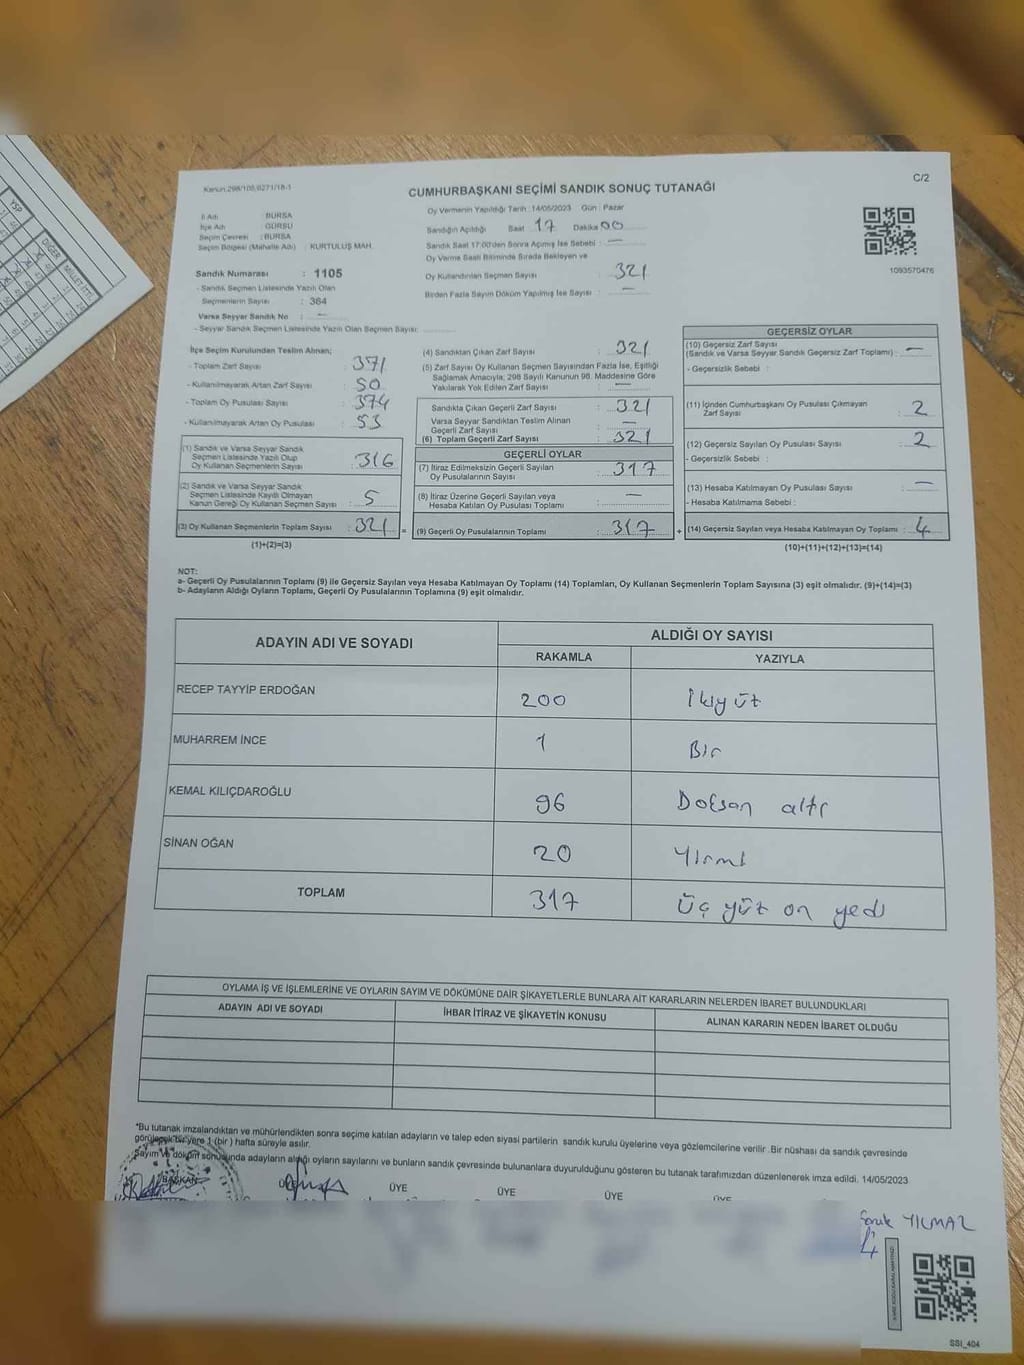 Kanun:298/105,6271/18-1
CUMHURBAŞKANI SEÇİMİ SANDIK SONUÇ TUTANAĞI
C/2
İl Adı : BURSA
İlçe Adı : GÜRSU
Seçim Çevresi : BURSA
Seçim Bölgesi (Mahalle Adı) : KURTULUŞ MAH.
Sandık Numarası : 1105
- Sandık Seçmen Listesinde Yazılı Olan
Seçmenlerin Sayısı : 364
Varsa Seyyar Sandık No : —
- Seyyar Sandık Seçmen Listesinde Yazılı Olan Seçmen Sayısı:
Oy Vermenin Yapıldığı Tarih :14/05/2023 Gün : Pazar
Sandığın Açıldığı Saat 17 Dakika 00
Sandık Saat 17:00'den Sonra Açılmış İse Sebebi : —
Oy Verme Saati Bitiminde Sırada Bekleyen ve
Oy Kullandırılan Seçmen Sayısı : 321
Birden Fazla Sayım Döküm Yapılmış İse Sayısı : —
1093570476
İlçe Seçim Kurulundan Teslim Alınan;
- Toplam Zarf Sayısı : 371
- Kullanılmayarak Artan Zarf Sayısı : 50
- Toplam Oy Pusulası Sayısı : 374
- Kullanılmayarak Artan Oy Pusulası : 53
(1) Sandık ve Varsa Seyyar Sandık
Seçmen Listesinde Yazılı Olup
Oy Kullanan Seçmenlerin Sayısı : 316
(2) Sandık ve Varsa Seyyar Sandık
Seçmen Listesinde Kayıtlı Olmayan
Kanun Gereği Oy Kullanan Seçmen Sayısı : 5
(3) Oy Kullanan Seçmenlerin Toplam Sayısı : 321
(1)+(2)=(3)
(4) Sandıktan Çıkan Zarf Sayısı : 321
(5) Zarf Sayısı Oy Kullanan Seçmen Sayısından Fazla İse, Eşitliği
Sağlamak Amacıyla; 298 Sayılı Kanunun 98. Maddesine Göre
Yakılarak Yok Edilen Zarf Sayısı : —
Sandıkta Çıkan Geçerli Zarf Sayısı : 321
Varsa Seyyar Sandıktan Teslim Alınan
Geçerli Zarf Sayısı : —
(6) Toplam Geçerli Zarf Sayısı : 321
GEÇERLİ OYLAR
(7) İtiraz Edilmeksizin Geçerli Sayılan
Oy Pusulalarının Sayısı : 317
(8) İtiraz Üzerine Geçerli Sayılan veya
Hesaba Katılan Oy Pusulası Toplamı : —
= (9) Geçerli Oy Pusulalarının Toplamı : 317 +
GEÇERSİZ OYLAR
(10) Geçersiz Zarf Sayısı
(Sandık ve Varsa Seyyar Sandık Geçersiz Zarf Toplamı) : —
- Geçersizlik Sebebi :
(11) İçinden Cumhurbaşkanı Oy Pusulası Çıkmayan
Zarf Sayısı : 2
(12) Geçersiz Sayılan Oy Pusulası Sayısı : 2
- Geçersizlik Sebebi :
(13) Hesaba Katılmayan Oy Pusulası Sayısı : —
- Hesaba Katılmama Sebebi :
(14) Geçersiz Sayılan veya Hesaba Katılmayan Oy Toplamı : 4
(10)+(11)+(12)+(13)=(14)
NOT:
a- Geçerli Oy Pusulalarının Toplamı (9) ile Geçersiz Sayılan veya Hesaba Katılmayan Oy Toplamı (14) Toplamları, Oy Kullanan Seçmenlerin Toplam Sayısına (3) eşit olmalıdır. (9)+(14)=(3)
b- Adayların Aldığı Oyların Toplamı, Geçerli Oy Pusulalarının Toplamına (9) eşit olmalıdır.
ADAYIN ADI VE SOYADI ALDIĞI OY SAYISI
RAKAMLA YAZIYLA
RECEP TAYYİP ERDOĞAN 200 İkiyüz
MUHARREM İNCE 1 Bir
KEMAL KILIÇDAROĞLU 96 Doksan altı
SİNAN OĞAN 20 Yirmi
TOPLAM 317 Üç yüz on yedi
OYLAMA İŞ VE İŞLEMLERİNE VE OYLARIN SAYIM VE DÖKÜMÜNE DAİR ŞİKAYETLERLE BUNLARA AİT KARARLARIN NELERDEN İBARET BULUNDUKLARI
ADAYIN ADI VE SOYADI İHBAR İTİRAZ VE ŞİKAYETİN KONUSU ALINAN KARARIN NEDEN İBARET OLDUĞU
*Bu tutanak imzalandıktan ve mühürlendikten sonra seçime katılan adayların ve talep eden siyasi partilerin sandık kurulu üyelerine veya gözlemcilerine verilir .Bir nüshası da sandık çevresinde
görülecek bir yere 1 (bir ) hafta süreyle asılır.
Sayım ve döküm sonucunda adayların aldığı oyların sayılarını ve bunların sandık çevresinde bulunanlara duyurulduğunu gösteren bu tutanak tarafımızdan düzenlenerek imza edildi. 14/05/2023
BAŞKAN ÜYE ÜYE ÜYE ÜYE
Faruk YILMAZ
SSI_404
YSP
DİĞER
MİLLET İTTİ